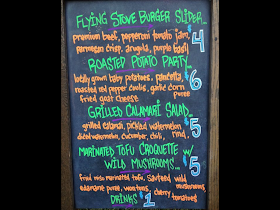 FLYING STOVE BURGER SLIDER...
premium beef, pepperoni tomato jam,
parmesan crisp, arugula, purple basil
4
ROASTED POTATO PARTY...
locally grown baby potatoes, pancetta,
roasted red pepper coulis, garlic corn
fried goat cheese puree
6
GRILLED CALAMARI SALAD...
grilled calamari, pickled watermelon
diced watermelon, cucumber, chili, rind,
5
MARINATED TOFU CROQUETTE W/
WILD MUSHROOMS...
fried miso marinated tofu, sauteed wild
edamame puree, wontons, mushrooms
cherry tomatoes
5
DRINKS $1